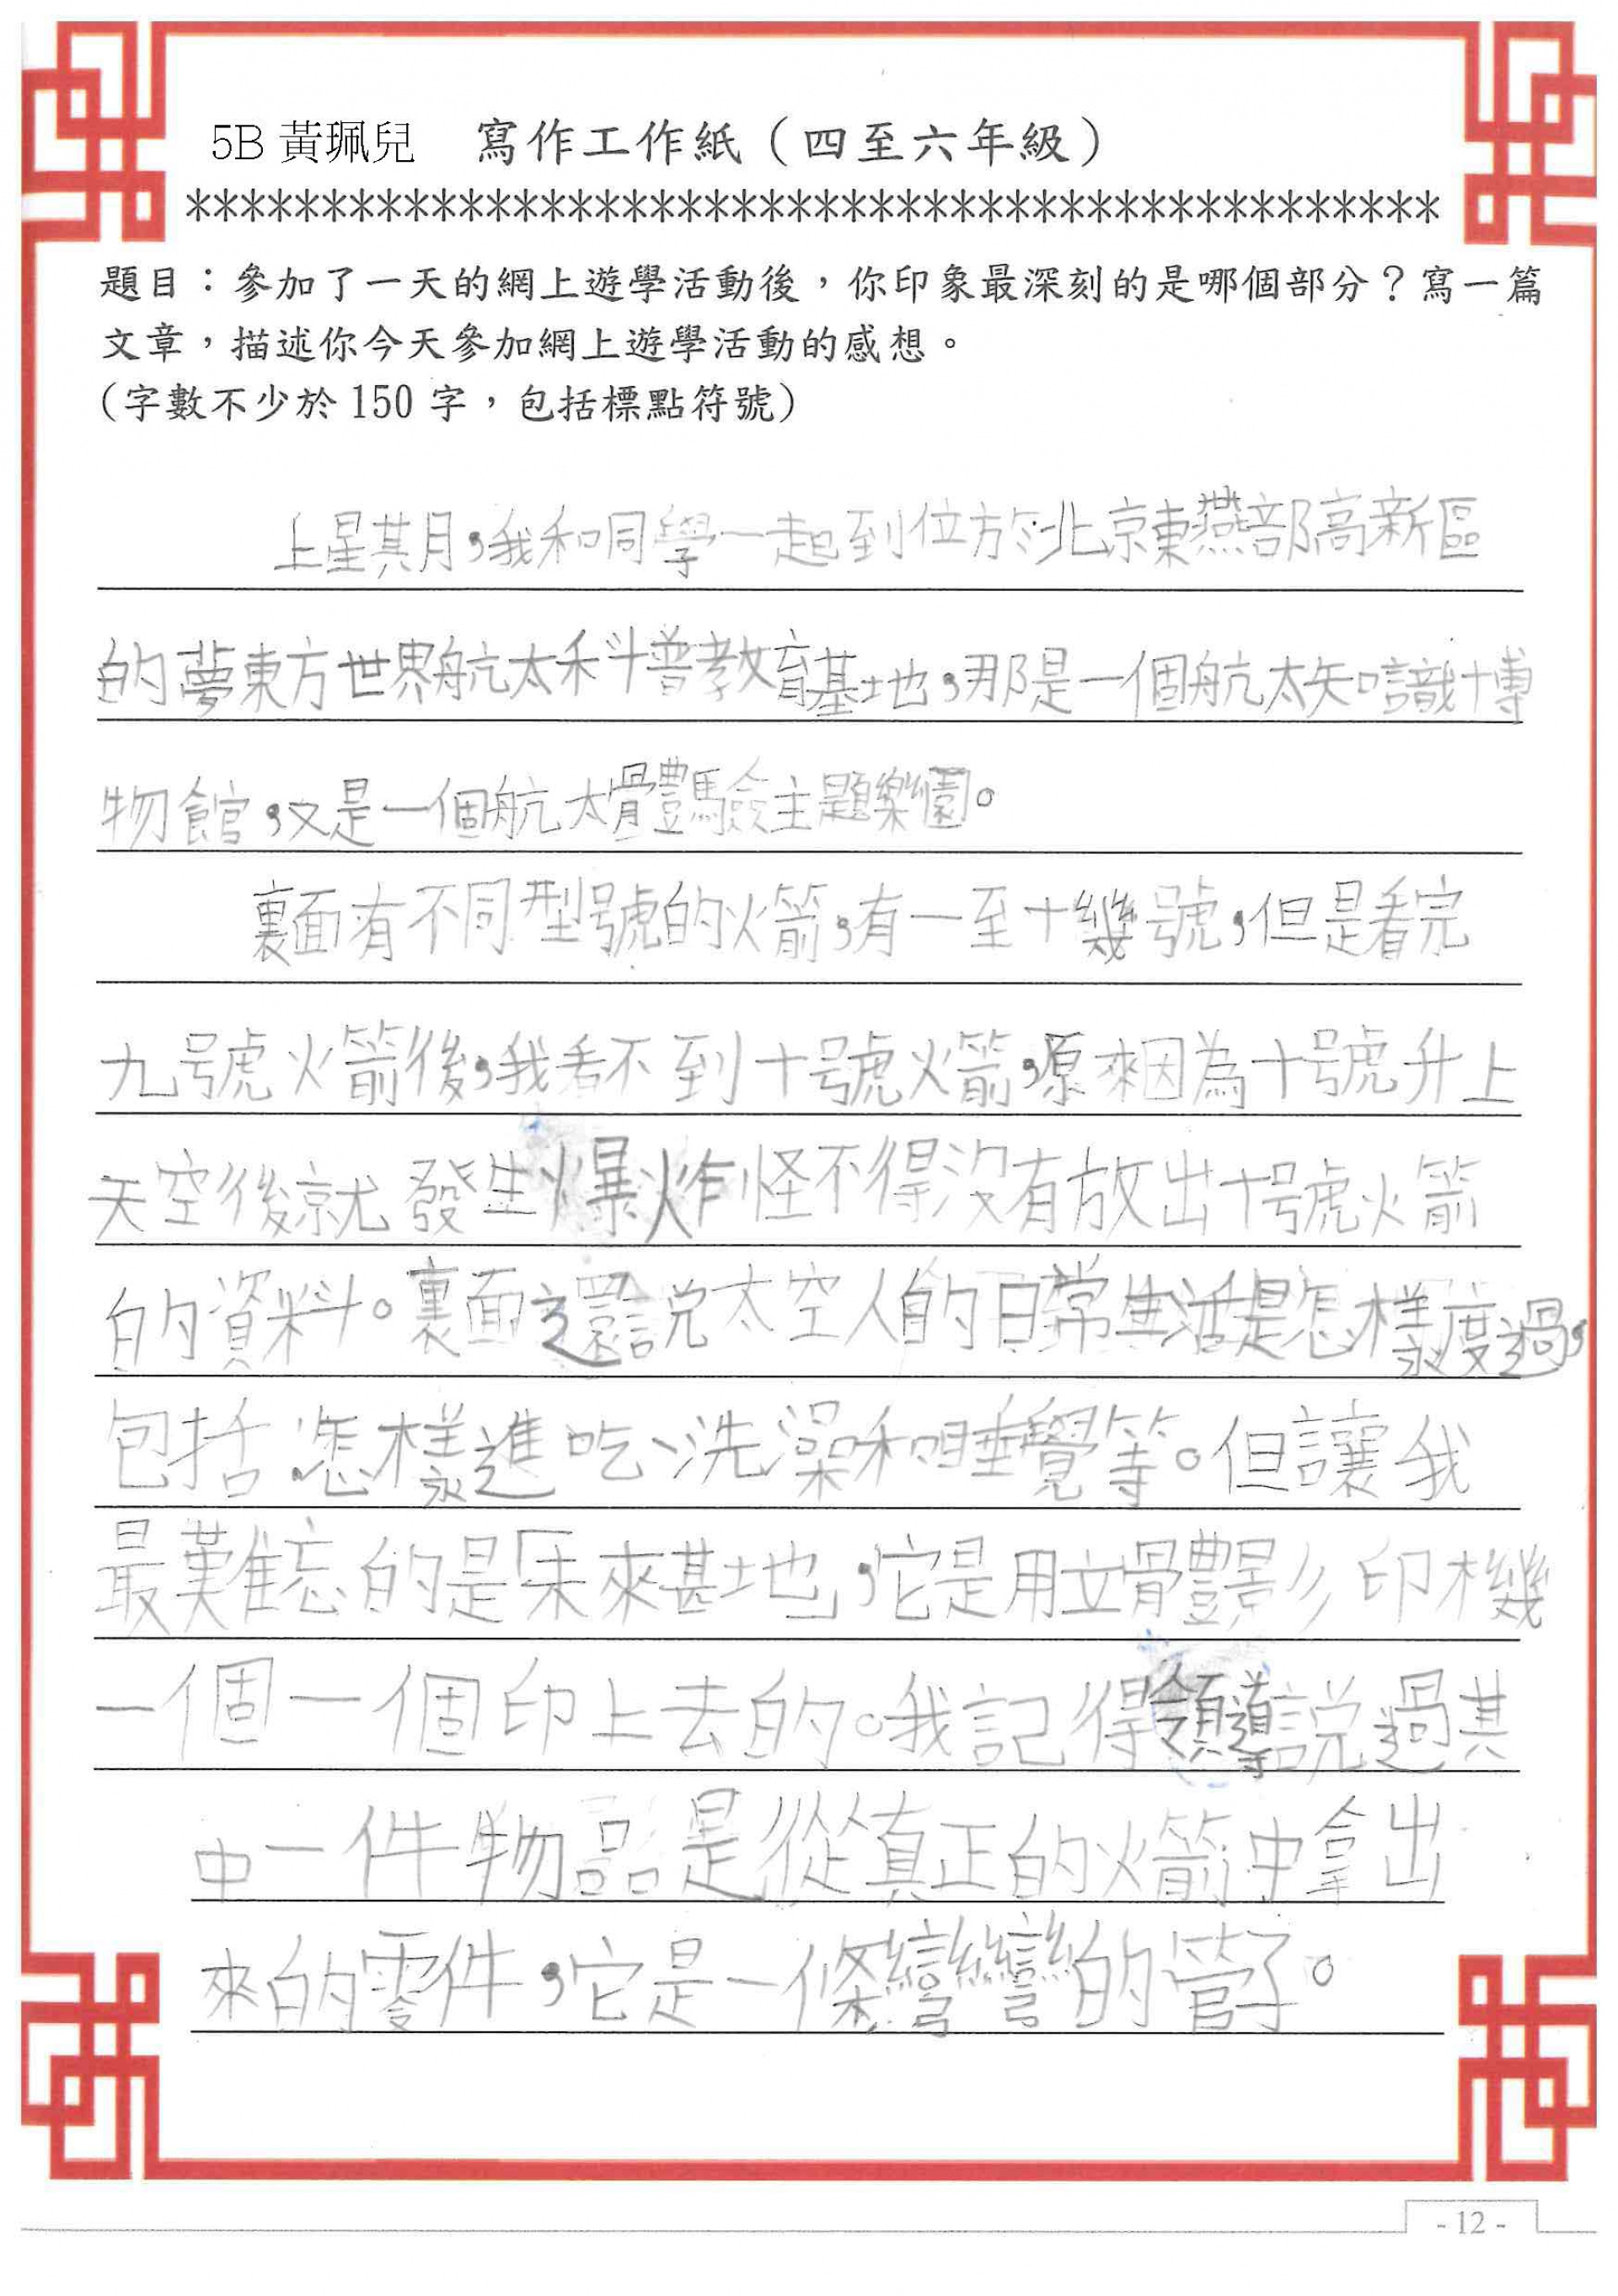 5B 黃珮兒 寫作工作紙（四至六年級）
**********************************************
題目：參加了一天的網上遊學活動後，你印象最深刻的是哪個部分？寫一篇
文章，描述你今天參加網上遊學活動的感想。
(字數不少於 150 字，包括標點符號)
上星其月，我和同學一起到位於北京東燕部高新區
的夢東方世界航太科普教育基地，那是一個航太知識博
物館，又是一個航太體驗主題樂園。
裏面有不同型號的火箭，有一至十幾號，但是看完
九號火箭後，我看不到十號火箭，原來因為十號升上
天空後就發生爆炸怪不得沒有放出十號火箭
的資料。裏面還說太空人的日常生活是怎樣度過，
包括怎樣進吃、洗澡和睡覺等。但讓我
最難忘的是「未來基地」，它是用立體影印機
一個一個印上去的。我記得領導說過其
中一件物品是從真正的火箭中拿出
來的零件，它是一條彎彎的管子。
- 12 -